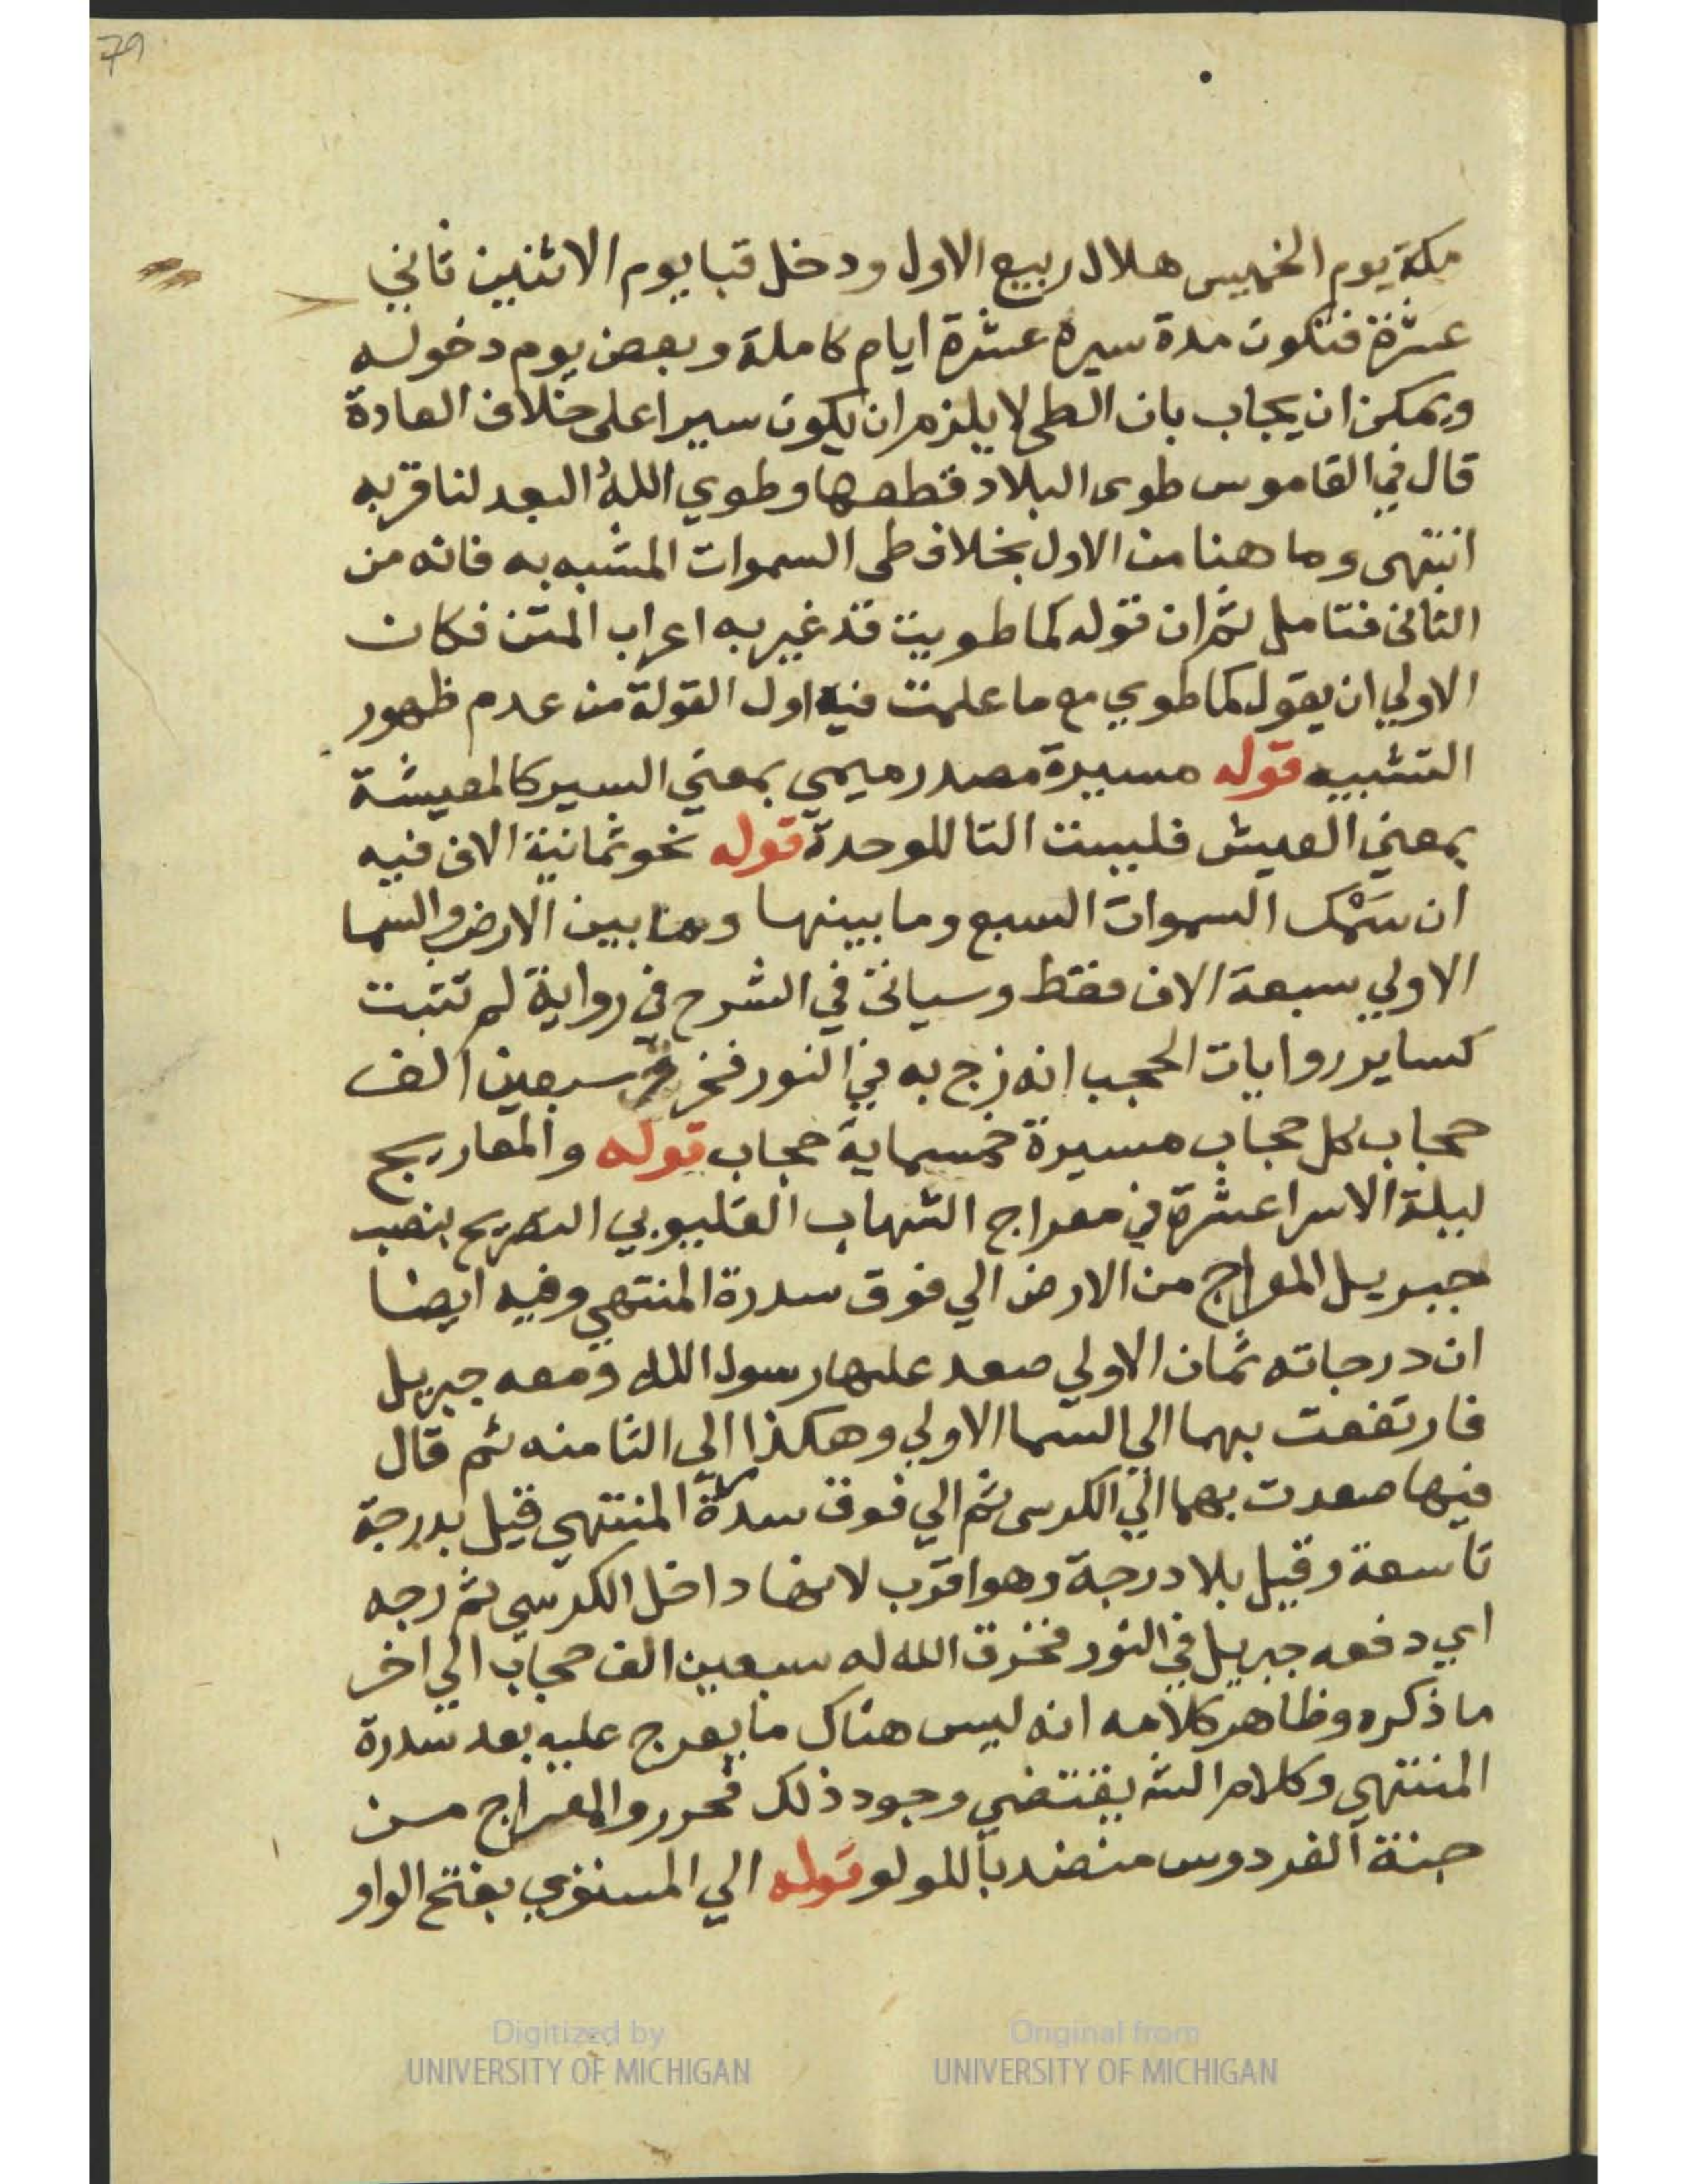 79
مكة يوم الخميس هلال ربيع الاول ودخل قبا يوم الاثنين ثاني
عشرة فتكون مدة سيره عشرة ايام كاملة وبعض يوم دخوله
ويمكن ان يجاب بان الطى لا يلزم ان يكون سيرا على خلاف العادة
قال في القاموس طوى البلاد قطعها وطوي الله البعد لنا قربه
انتهى وما هنا من الاول بخلاف طى السموات المشبه به فانه من
الثانى فتامل ثم ان قوله كما طويت قد غير به اعراب المتن فكان
الاولي ان يقول كما طوي مع ما علمت فيه اول القولة من عدم ظهور
التشبيه قوله مسيرة مصدر ميمي بمعني السير كالمعيشة
بمعني العيش فليست التا للوحدة قوله نحو ثمانية الاف فيه
ان سَمْك السموات السبع وما بينها وما بين الارض والسما
الاولي سبعة الاف فقط وسياتى في الشرح في رواية لم تثبت
كساير روايات الحجب انه زج به في النور فخرق سبعين الف
حجاب كل حجاب مسيرة خمسماية حجاب قوله والمعاريج
ليلة الاسرا عشرة في معراج الشهاب القليوبي التصريح بنصب
جبريل المعراج من الارض الي فوق سدرة المنتهي وفيه ايضا
ان درجاته ثمان الاولي صعد عليها رسول الله ومعه جبريل
فارتفعت بهما الي السما الاولي وهكذا الي الثامنه ثم قال
فيها صعدت بهما الي الكرسى ثم الي فوق سدرة المنتهي قيل بدرجة
تاسعة وقيل بلا درجة وهو اقرب لانها داخل الكرسي ثم زجه
اي دفعه جبريل في النور فخرق الله له سبعين الف حجاب الي اخر
ما ذكره وظاهر كلامه انه ليس هناك ما يعرج عليه بعد سدرة
المنتهي وكلام الشه يقتضي وجود ذلك فحرر والمعراج من
جنة الفردوس منضد باللولو قوله الي المستوي بفتح الواو
Digitized by
UNIVERSITY OF MICHIGAN
Original from
UNIVERSITY OF MICHIGAN